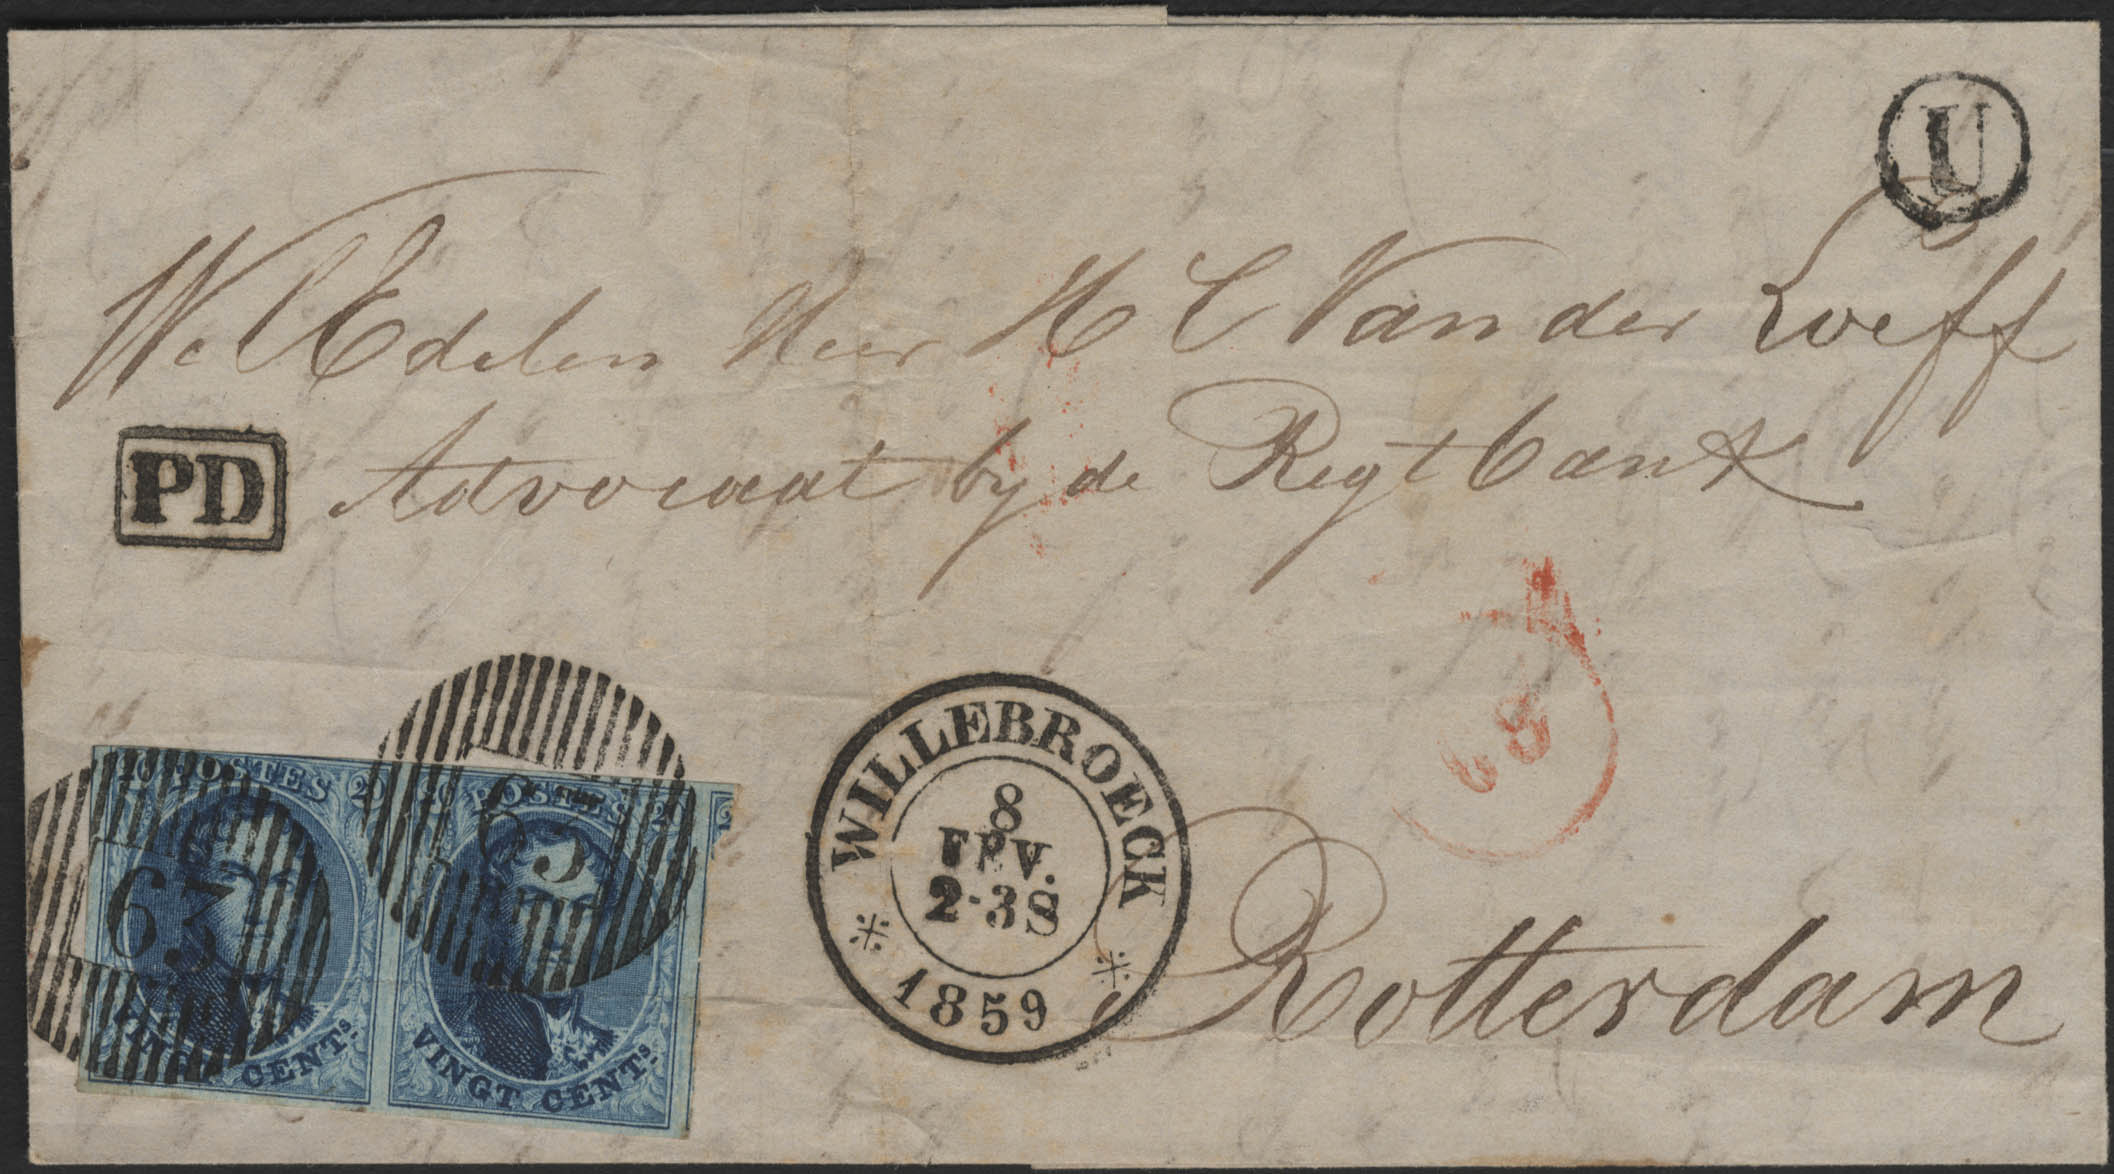 U
WelEdelen Heer H C Van der Loeff
PD
Advocaat by de Regtbank
68
WILLEBROECK
8
FEV.
2-3S
1859
20 POSTES 20
63
VINGT CENTS.
20 POSTES 20
63
VINGT CENTS.
Rotterdam